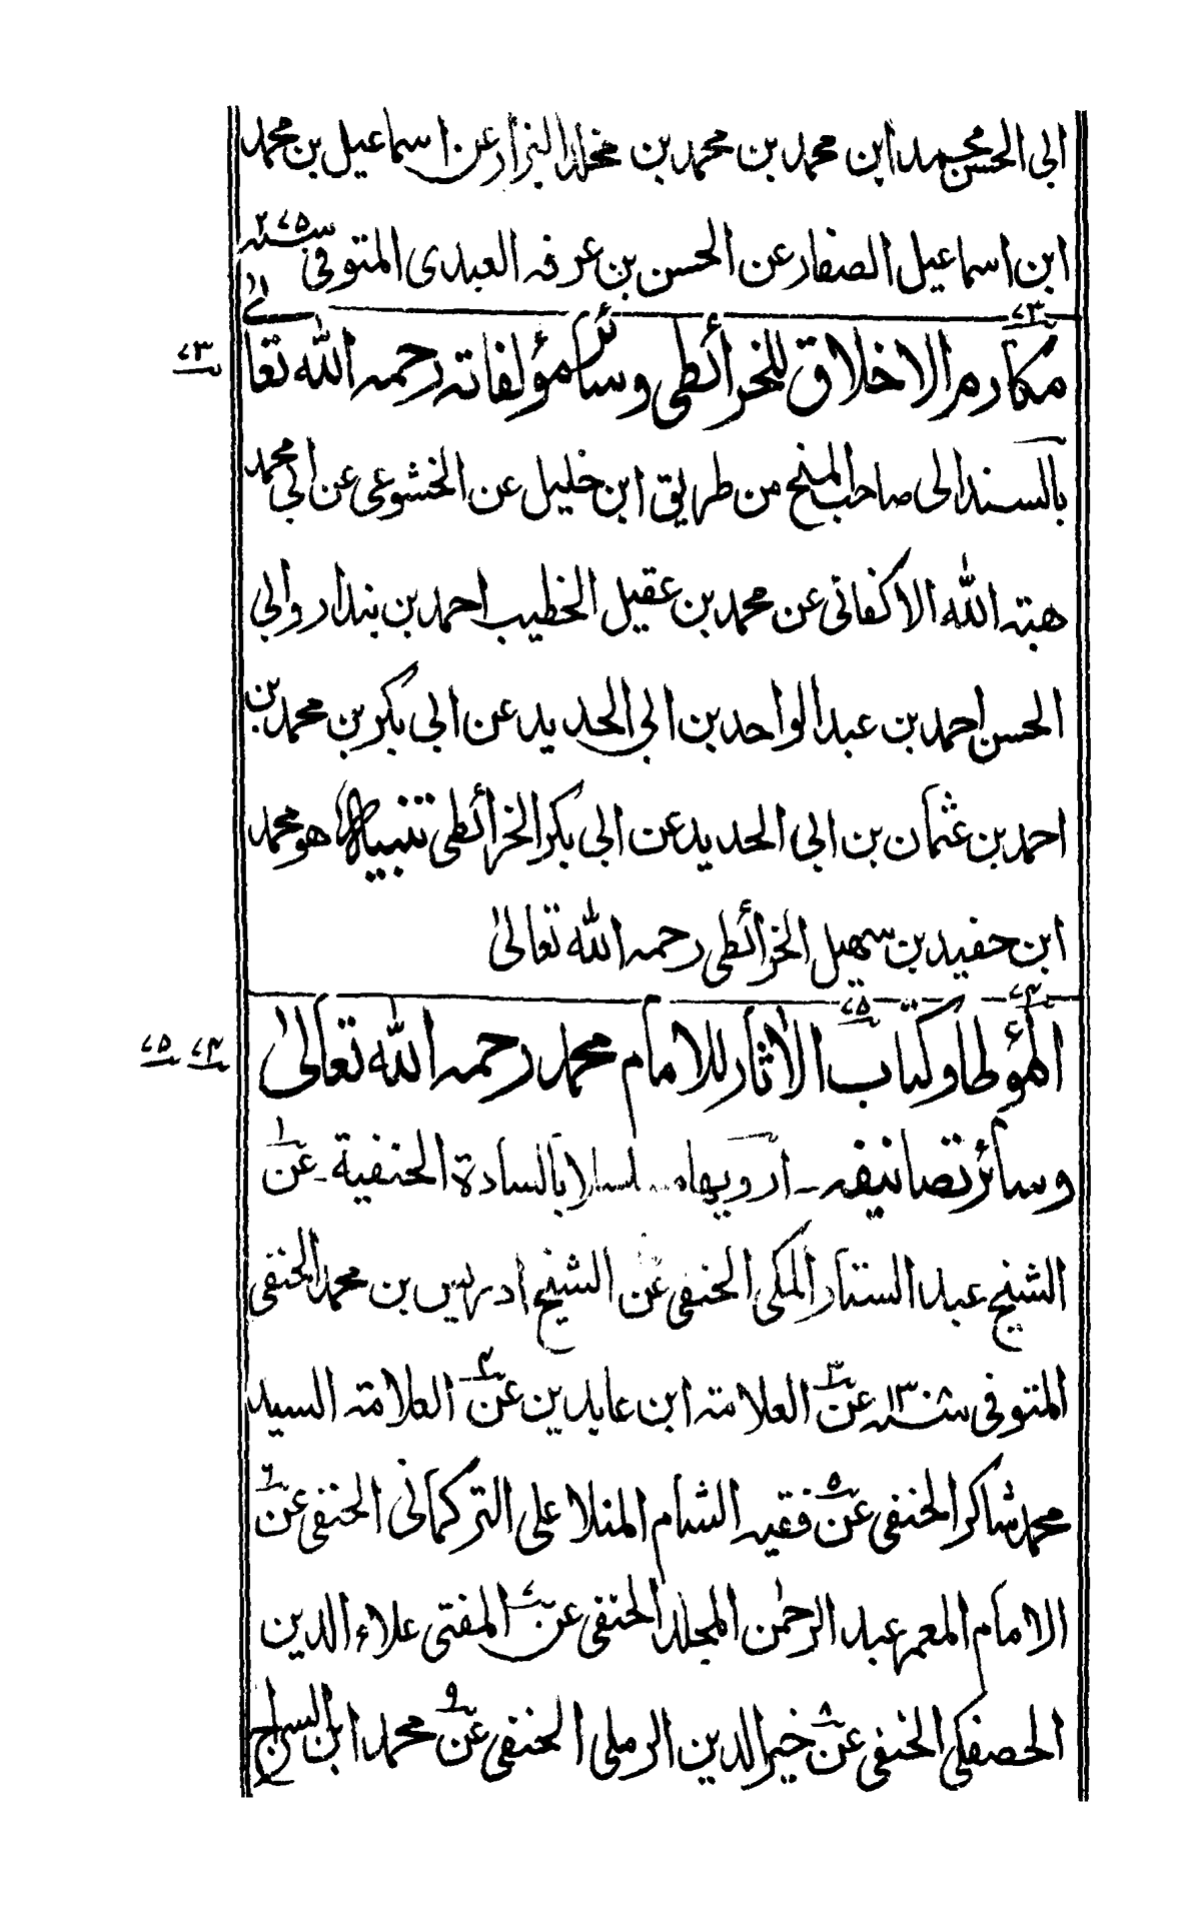 ابى الحسن محمد ابن محمد بن محمد بن مخلد البزار عن اسماعيل بن محمد
ابن اسماعيل الصفار عن الحسن بن عرفه العبدى المتوفى سنه ٢٧٥
٧٣
مكارم الاخلاق للخرائطى وسائر مؤلفاته رحمه الله تعالىٰ
٧٣
بالسند الى صاحب المنح من طريق ابن خليل عن الخشوعى عن ابى محمد
هبته الله الاكفانى عن محمد بن عقيل الخطيب احمد بن بندار وابى
الحسن احمد بن عبد الواحد بن ابى الحديد عن ابى بكر بن محمد بن
احمد بن عثمان بن ابى الحديد عن ابى بكر الخرائطى تنبيه هو محمد
ابن حفيد بن سهيل الخرائطى رحمه الله تعالىٰ
٧٤ ٧٥
المؤطا وكتاب الاٰثار للامام محمد رحمه الله تعالىٰ
٧٤ ٧٥
وسائر تصانيفه ـ ارويها مسلسلا بالسادة الحنفية ـ عن ١
الشيخ عبد الستار المكى الحنفى عن الشيخ ادريس بن محمد الحنفى
المتوفى سنه ١٣ عن ٣ العلامته ابن عابدين عن ٤ العلامته السيد
محمد شاكر الحنفى عن ٥ فقيه الشام المنلا على التركمانى الحنفى عن ٦
الامام المعمر عبد الرحمٰن المجلد الحنفى عن ٧ المفتى علاء الدين
الحصفكى الحنفى عن ٨ خير الدين الرملى الحنفى عن ٩ محمد ابن السراج